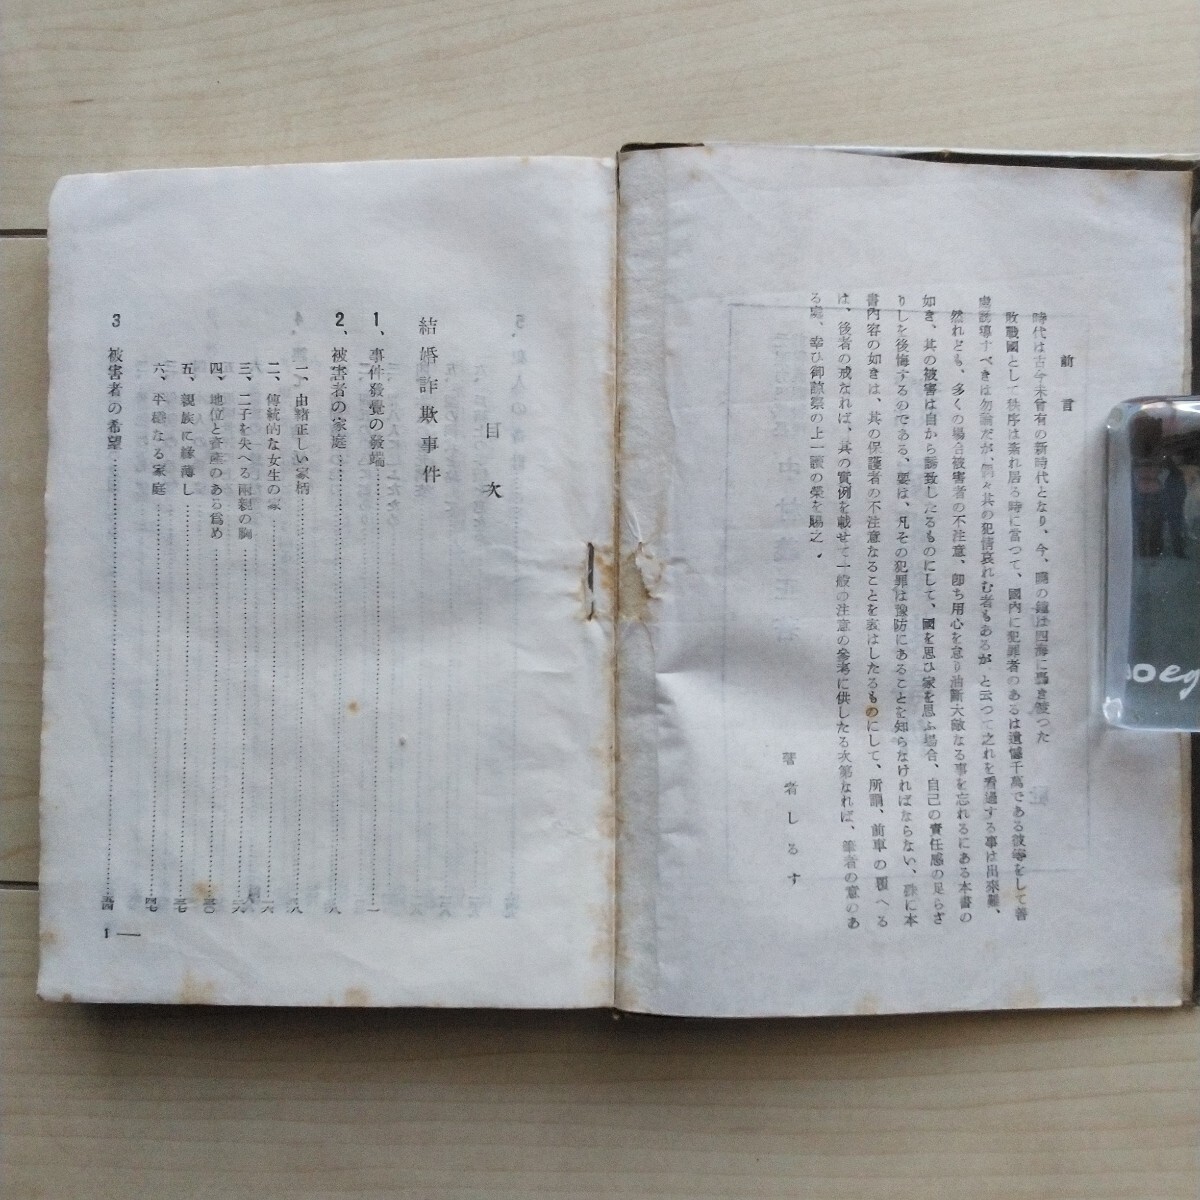 前言
時代は古今未曾有の新時代となり、今、鐘は四海に響き渡つた
敗戰國として秩序は紊れ居る時に當つて、國內に犯罪者のあるは遺憾千萬である彼等をして善
處誘導すべきは勿論だが、偶々其の犯情哀れむ者もあるが と云つて之れを看過する事は出來難、
然れども、多くの場合被害者の不注意、卽ち用心を怠り油斷大敵なる事を忘れるにある本書の
如き、其の被害は自から誘致したるものにして、國を思ひ家を思ふ場合、自己の責任感の足らざ
りしを後悔するのである、要は、凡その犯罪は豫防にあることを知らなければならない、殊に本
書內容の如きは、其の保護者の不注意なることを表はしたるものにして、所謂、前車の覆へる
は、後者の戒なれば、其の實例を載せて一般の注意の參考に供したる次第なれば、筆者の意のあ
る處、幸ひ御諒察の上一讀の榮を賜之。
著者しるす
目次
結婚詐欺事件
1、事件發覺の發端……一
2、被害者の家庭……八
一、由緖正しい家柄……八
二、傳統的な女生の家……一六
三、二子を失へる兩親の胸……二六
四、地位と資產のある爲め……三〇
五、親族に緣薄し……三七
六、平穩なる家庭……四七
3 被害者の希望……五四
1 —
oeg